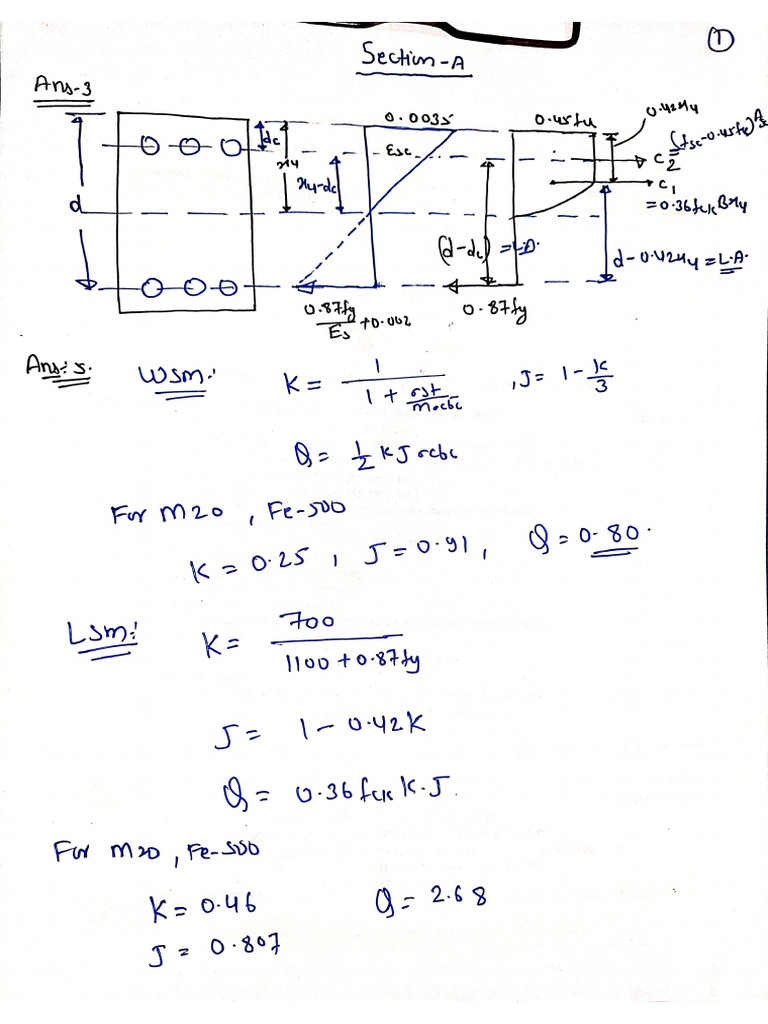 ①
Section-A
Ans-3
0.0035
0.45fck
0.42xu
dc
xu
Esc
C2 = (fsc-0.45fck)Asc
xu-dc
C1
= 0.36fck B xu
d
(d-dc) = L.A.
d-0.42xu = L.A.
0.87fy/Es + 0.002
0.87fy
Ans:5.
WSM:
K = 1/(1 + σst/mσcbc), J = 1 - K/3
Q = 1/2 K J σcbc
For M20, Fe-500
K = 0.25, J = 0.91, Q = 0.80.
LSM:
K = 700/(1100 + 0.87fy)
J = 1 - 0.42K
Q = 0.36fck K.J.
For M20, Fe-500
K = 0.46 Q = 2.68
J = 0.807